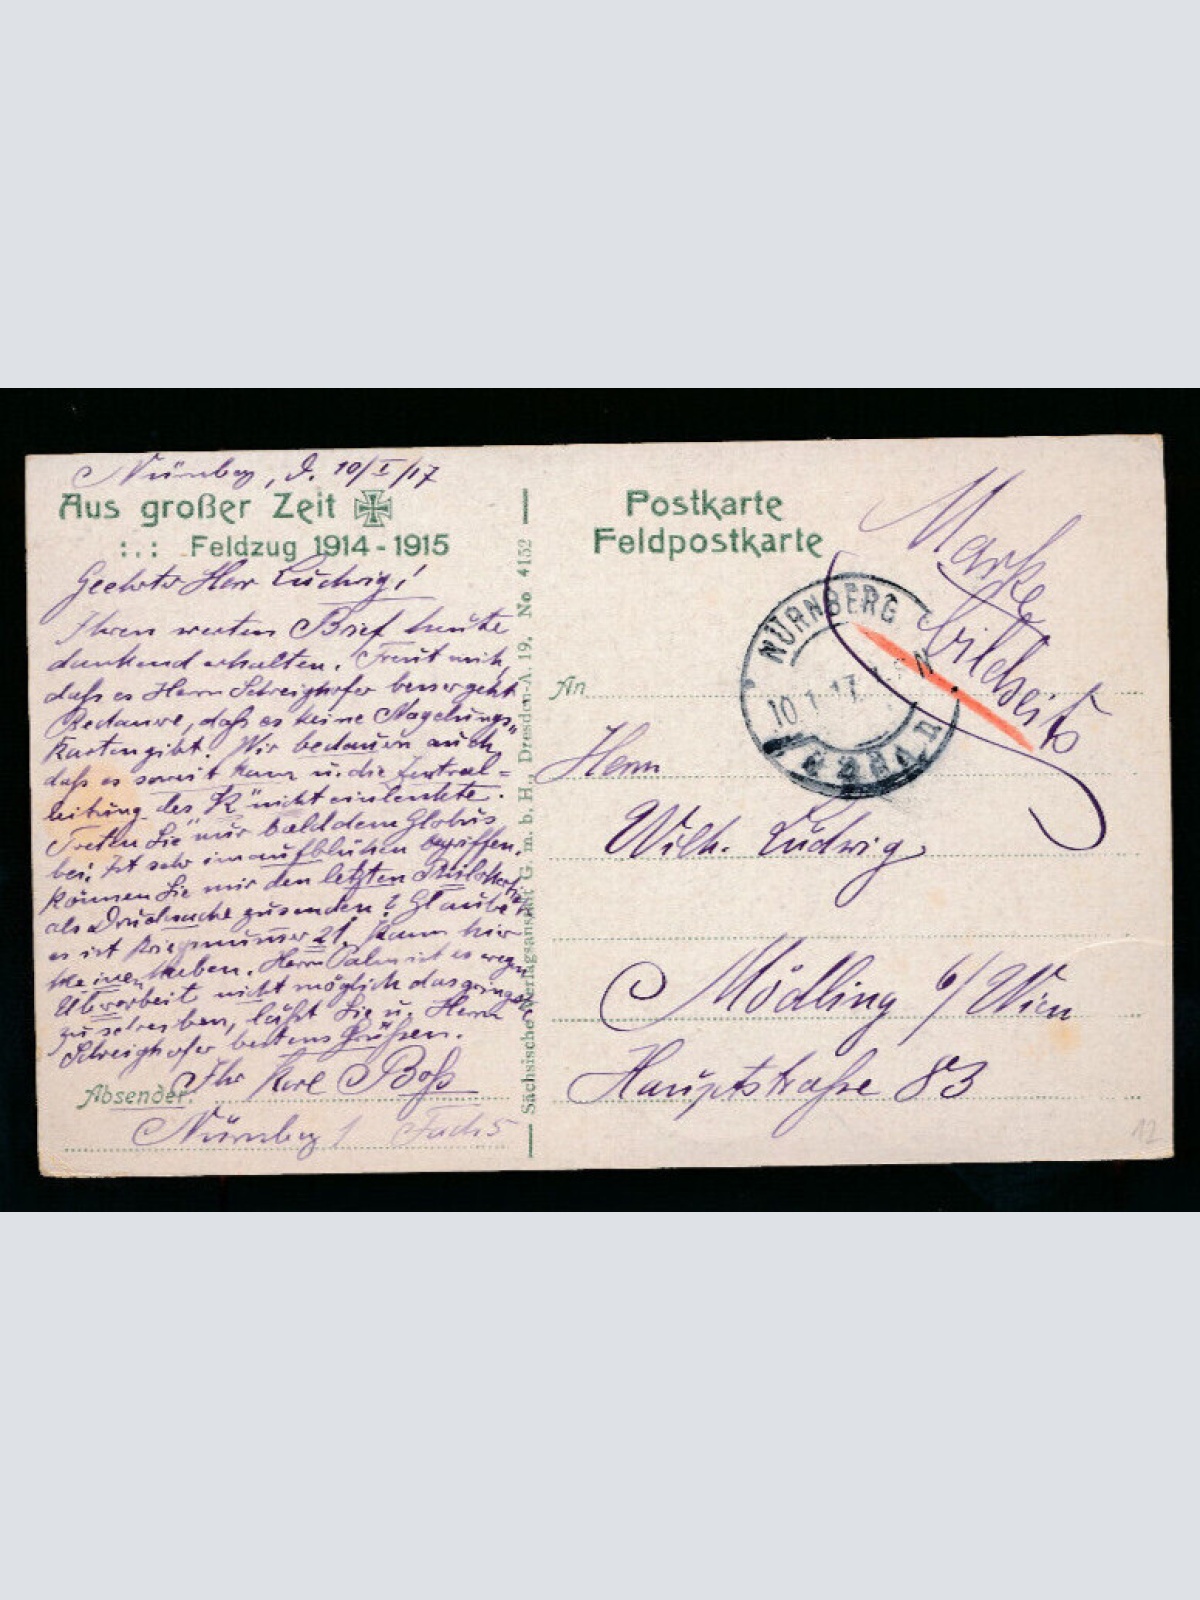 Nürnberg, d. 10/I/17
Aus großer Zeit
:.: Feldzug 1914-1915
Geehrter Herr Ludwig!
Ihren werten Brief heute
dankend erhalten. Freut mich,
daß es Herrn Schreighofer besser geht
Bedaure, daß es keine Nagelungs"
karten gibt. Wir bedauern auch,
daß es soweit kam u. die Zentral=
leitung des "K" nicht einlenkte.
Treten Sie nur bald dem Globus
bei. Ist sehr im aufblühen begriffen.
Können Sie mir den letzten
als Drucksache zusenden? Glaube
es ist Kriegsnummer 21. Kann hier
keinen haben. Herrn Palm ist es wegen
Überarbeit nicht möglich das geringste
zu schreiben, läßt Sie u. Herrn
Schreighofer bestens Grüßen.
Ihr Karl Boß
Absender:
Nürnberg / Fach 5
Sächsische Verlagsanstalt G. m. b. H., Dresden-A. 19. No. 4152
Postkarte
Feldpostkarte
Marke
Bildseite
NÜRNBERG
10.1.17
An
Herrn
Wilh. Ludwig,
Mödling b/Wien
Hauptstraße 83
12